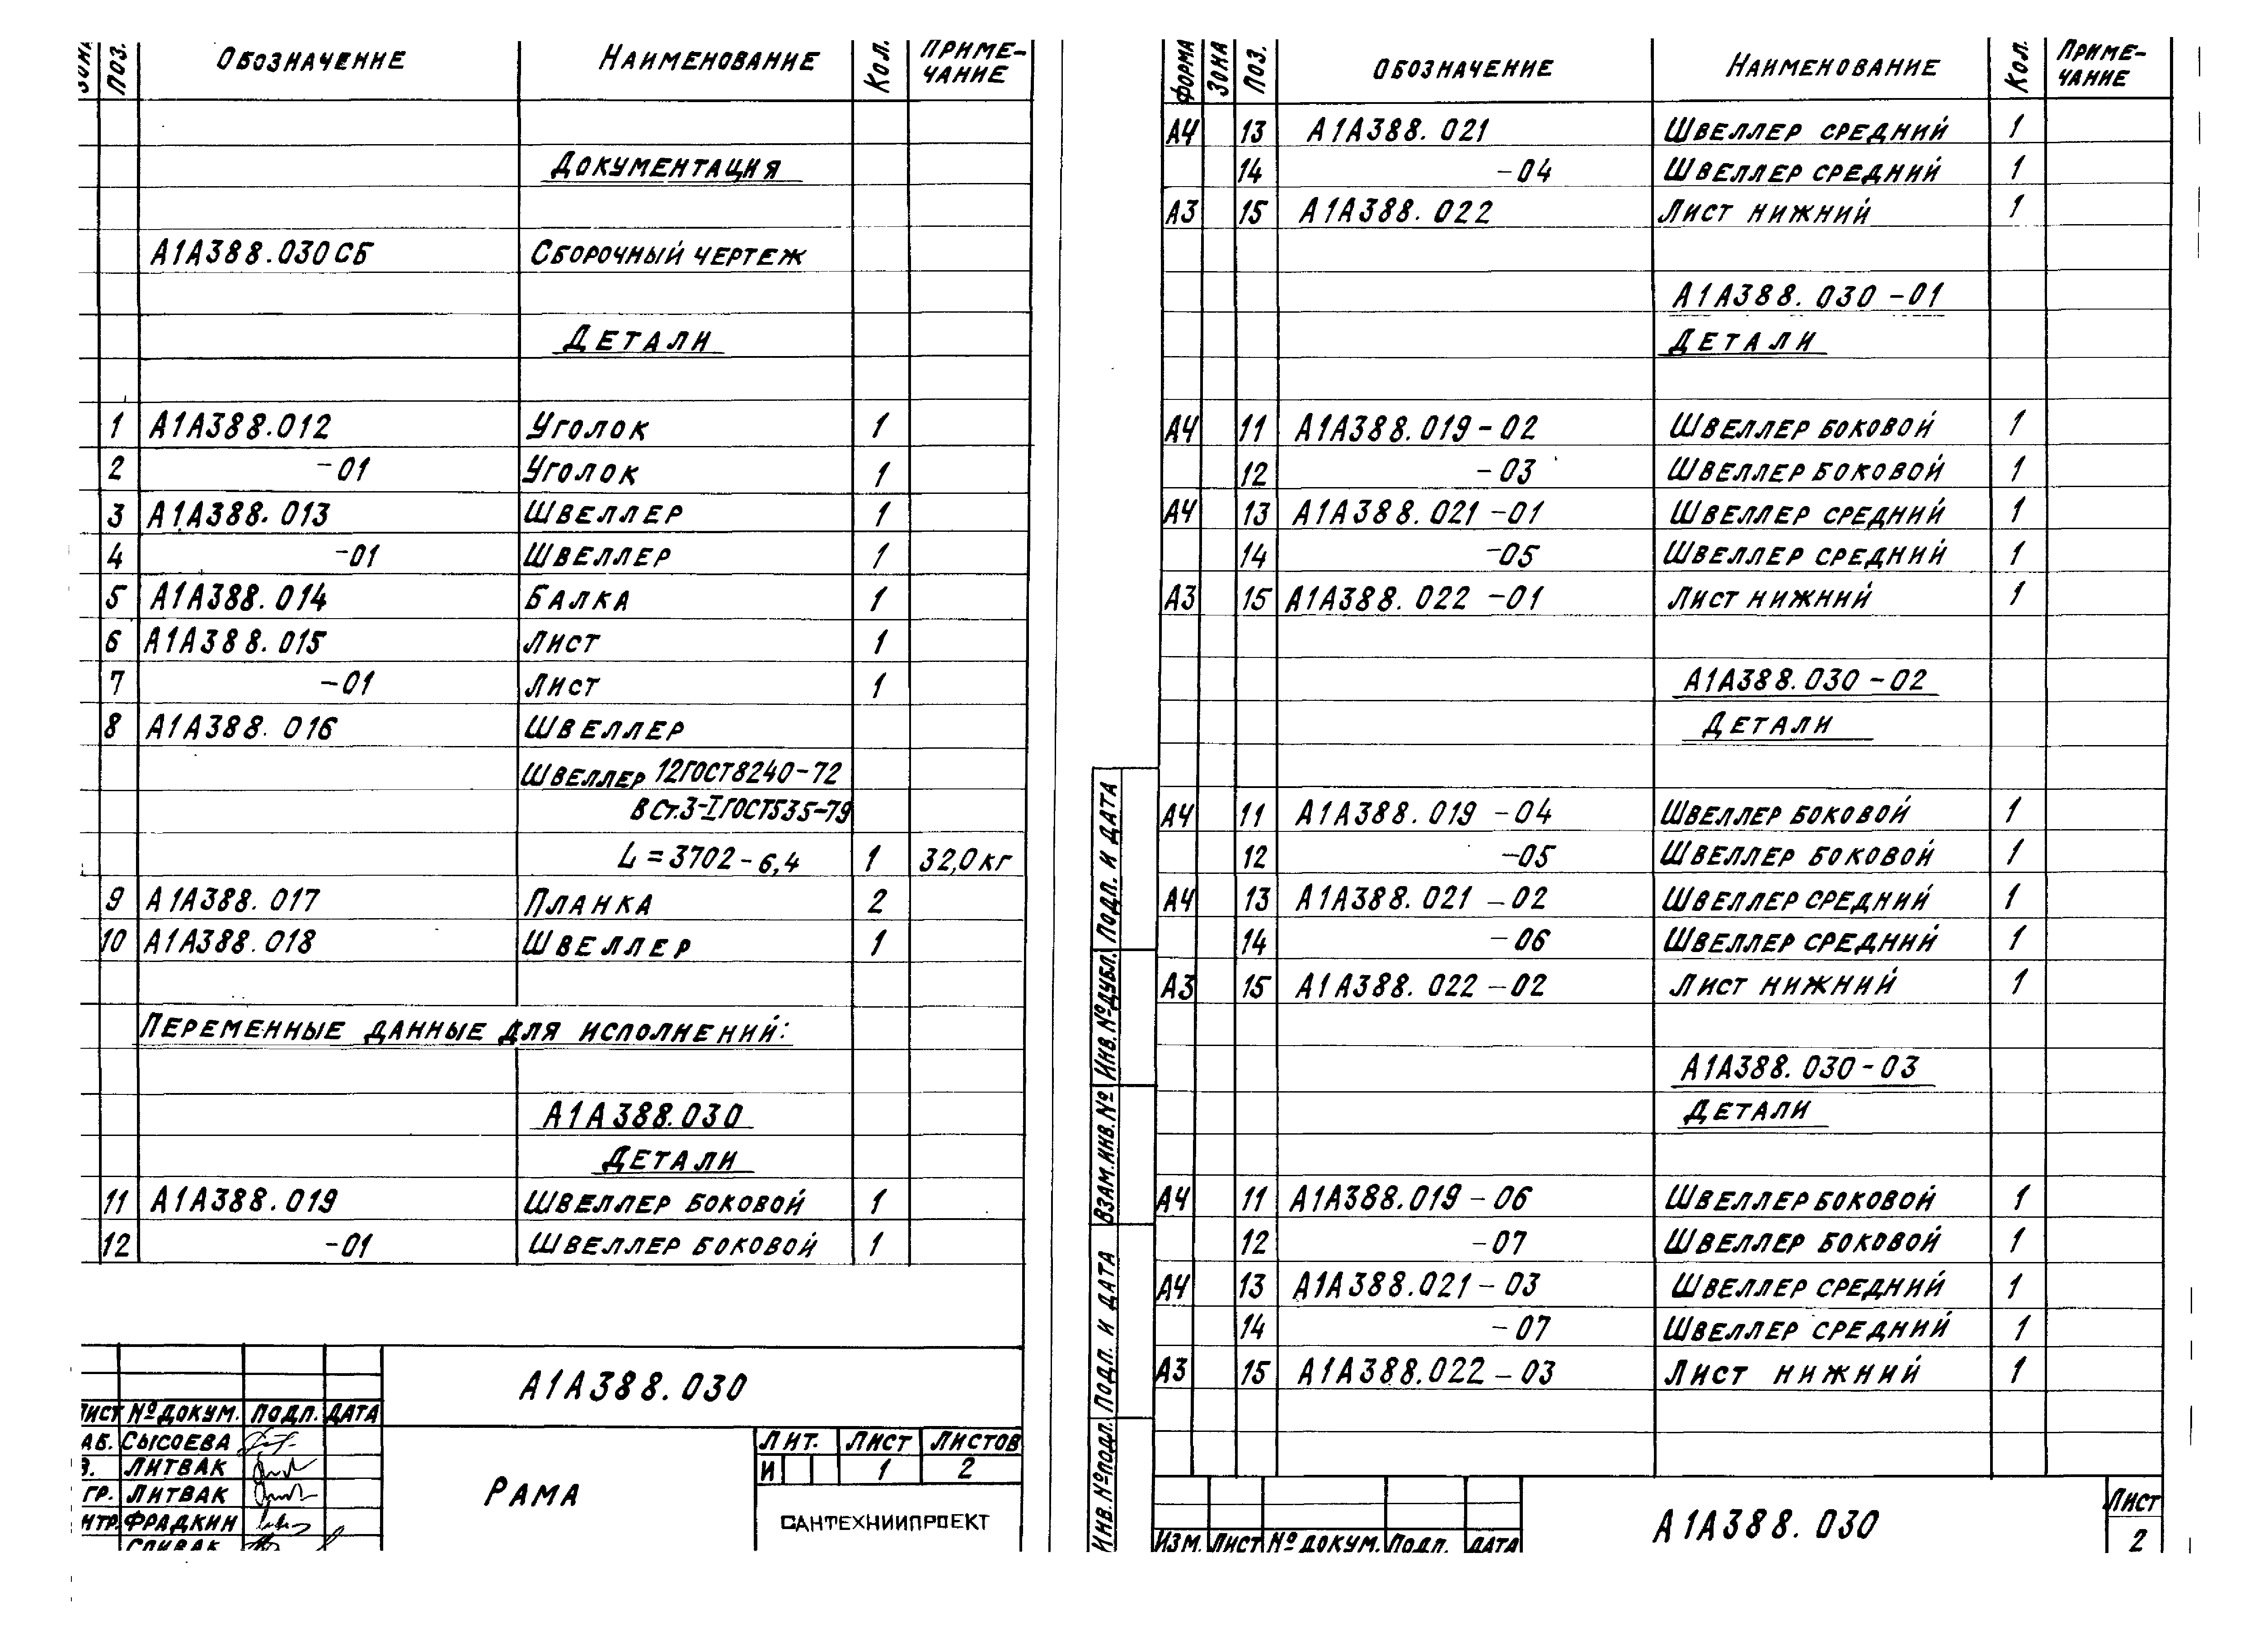 ПОЗ. ОБОЗНАЧЕНИЕ НАИМЕНОВАНИЕ КОЛ. ПРИМЕ-
ЧАНИЕ
ДОКУМЕНТАЦИЯ
А1А388.030СБ СБОРОЧНЫЙ ЧЕРТЕЖ
ДЕТАЛИ
1 А1А388.012 УГОЛОК 1
2 -01 УГОЛОК 1
3 А1А388.013 ШВЕЛЛЕР 1
4 -01 ШВЕЛЛЕР 1
5 А1А388.014 БАЛКА 1
6 А1А388.015 ЛИСТ 1
7 -01 ЛИСТ 1
8 А1А388.016 ШВЕЛЛЕР
ШВЕЛЛЕР 12ГОСТ8240-72
ВСт.3-IГОСТ535-79
L=3702-6,4 1 32,0кг
9 А1А388.017 ПЛАНКА 2
10 А1А388.018 ШВЕЛЛЕР 1
ПЕРЕМЕННЫЕ ДАННЫЕ ДЛЯ ИСПОЛНЕНИЙ:
А1А388.030
ДЕТАЛИ
11 А1А388.019 ШВЕЛЛЕР БОКОВОЙ 1
12 -01 ШВЕЛЛЕР БОКОВОЙ 1
А1А388.030
ЛИСТ № ДОКУМ. ПОДП. ДАТА
АБ. СЫСОЕВА
В. ЛИТВАК
ГР. ЛИТВАК
НТР. ФРАДКИН
СПИВАК
РАМА
ЛИТ. ЛИСТ ЛИСТОВ
И 1 2
САНТЕХНИИПРОЕКТ
ФОРМА ЗОНА ПОЗ. ОБОЗНАЧЕНИЕ НАИМЕНОВАНИЕ КОЛ. ПРИМЕ-
ЧАНИЕ
А4 13 А1А388.021 ШВЕЛЛЕР СРЕДНИЙ 1
14 -04 ШВЕЛЛЕР СРЕДНИЙ 1
А3 15 А1А388.022 ЛИСТ НИЖНИЙ 1
А1А388.030-01
ДЕТАЛИ
А4 11 А1А388.019-02 ШВЕЛЛЕР БОКОВОЙ 1
12 -03 ШВЕЛЛЕР БОКОВОЙ 1
А4 13 А1А388.021-01 ШВЕЛЛЕР СРЕДНИЙ 1
14 -05 ШВЕЛЛЕР СРЕДНИЙ 1
А3 15 А1А388.022-01 ЛИСТ НИЖНИЙ 1
А1А388.030-02
ДЕТАЛИ
А4 11 А1А388.019-04 ШВЕЛЛЕР БОКОВОЙ 1
12 -05 ШВЕЛЛЕР БОКОВОЙ 1
А4 13 А1А388.021-02 ШВЕЛЛЕР СРЕДНИЙ 1
14 -06 ШВЕЛЛЕР СРЕДНИЙ 1
А3 15 А1А388.022-02 ЛИСТ НИЖНИЙ 1
А1А388.030-03
ДЕТАЛИ
А4 11 А1А388.019-06 ШВЕЛЛЕР БОКОВОЙ 1
12 -07 ШВЕЛЛЕР БОКОВОЙ 1
А4 13 А1А388.021-03 ШВЕЛЛЕР СРЕДНИЙ 1
14 -07 ШВЕЛЛЕР СРЕДНИЙ 1
А3 15 А1А388.022-03 ЛИСТ НИЖНИЙ 1
ИНВ.№ПОДЛ. ПОДП. И ДАТА ВЗАМ.ИНВ.№ ИНВ.№ДУБЛ. ПОДП. И ДАТА
ИЗМ. ЛИСТ № ДОКУМ. ПОДП. ДАТА
А1А388.030
ЛИСТ
2